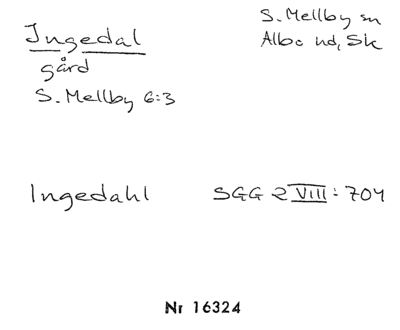 Ingedal
gård
S. Mellby 6:3
S. Mellby sn
Albo hd, Sk
Ingedahl SGG 2 VIII: 704
Nr 16324